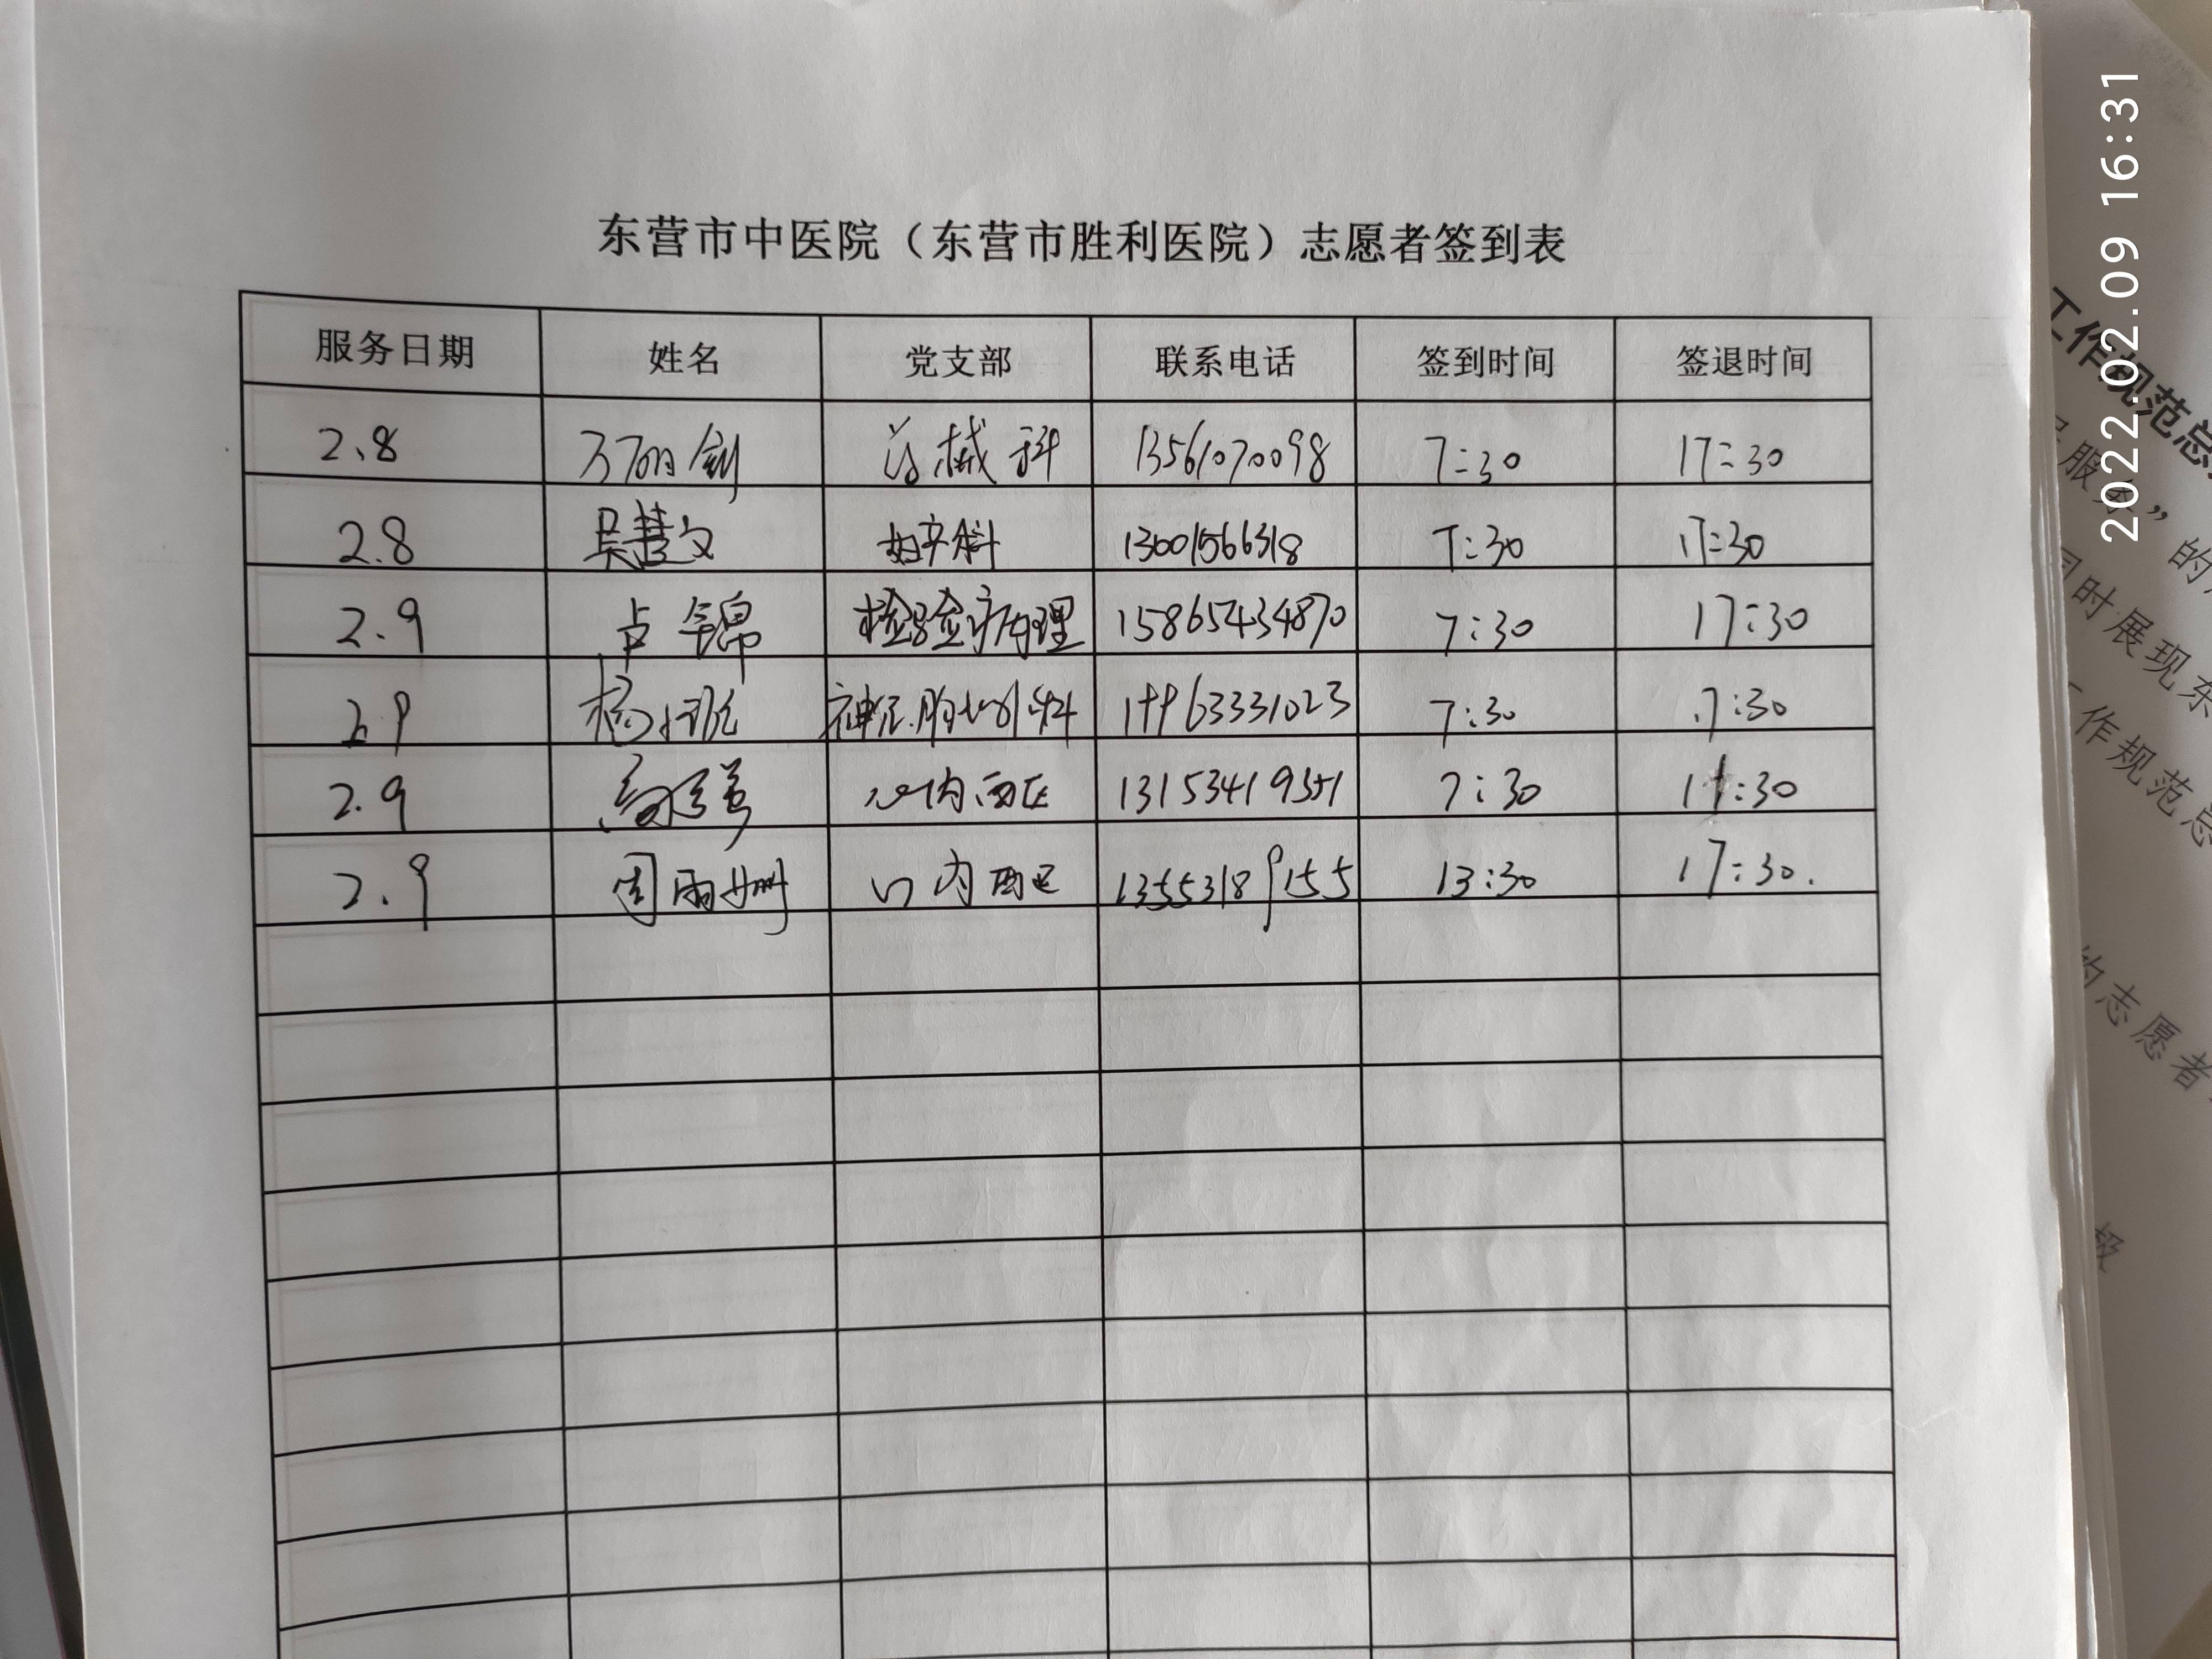 东营市中医院（东营市胜利医院）志愿者签到表
服务日期 姓名 党支部 联系电话 签到时间 签退时间
2.8 万丽剑 药械科 13561070098 7:30 17:30
2.8 吴慧文 妇产科 13001566318 7:30 17:30
2.9 卢锦 检验病理 15865434870 7:30 17:30
2.9 杨 神经 科 63331023 7:30 17:30
2.9 心内西区 7:30 17:30
2.9 周雨姗 心内西区 13553189155 13:30 17:30.
2022.02.09 16:31
工作规范总
服务”的
同时展现东
工作规范总
的志愿者
极